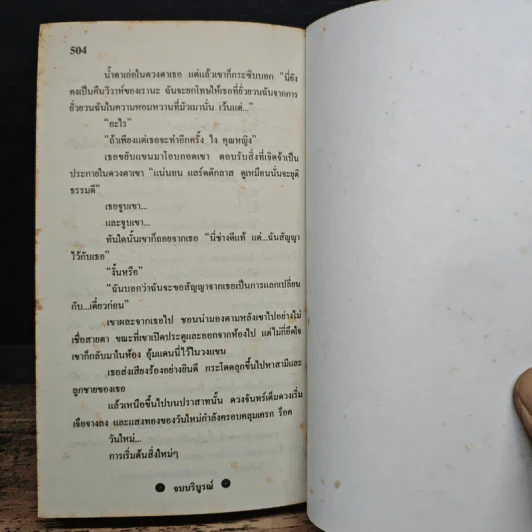 504
น้ำตาเอ่อในดวงตาเธอ แต่แล้วเขาก็กระซิบบอก "นี่ยัง
คงเป็นคืนวิวาห์ของเรานะ ฉันจะยกโทษให้เธอที่ยั่วยวนฉันจากการ
ยั่วยวนฉันในความหอมหวานที่มัวเมานั่น เว้นแต่..."
"อะไร"
"ถ้าเพียงแต่เธอจะทำอีกครั้ง ไง คุณหญิง"
เธอขยับแขนมาโอบกอดเขา ตอบรับสิ่งที่เจิดจ้าเป็น
ประกายในดวงตาเขา "แน่นอน แลร์ดดักลาส ดูเหมือนนั่นจะยุติ
ธรรมดี"
เธอจูบเขา...
และจูบเขา...
ทันใดนั้นเขาก็ถอยจากเธอ "นี่ช่างดีแท้ แต่...ฉันสัญญา
ไว้กับเธอ"
"งั้นหรือ"
"ฉันบอกว่าฉันจะขอสัญญาจากเธอเป็นการแลกเปลี่ยน
กับ...เดี๋ยวก่อน"
เขาผละจากเธอไป ชอนน่ามองตามหลังเขาไปอย่างไม่
เชื่อสายตา ขณะที่เขาเปิดประตูและออกจากห้องไป แต่ไม่กี่อึดใจ
เขาก็กลับมาในห้อง อุ้มแดนนี่ไว้ในวงแขน
เธอส่งเสียงร้องอย่างยินดี กระโดดลุกขึ้นไปหาสามีและ
ลูกชายของเธอ
แล้วเหนือขึ้นไปบนปราสาทนั้น ดวงจันทร์เต็มดวงเริ่ม
เจือจางลง และแสงทองของวันใหม่กำลังครอบคลุมเครก ร็อค
วันใหม่...
การเริ่มต้นสิ่งใหม่ๆ
จบบริบูรณ์